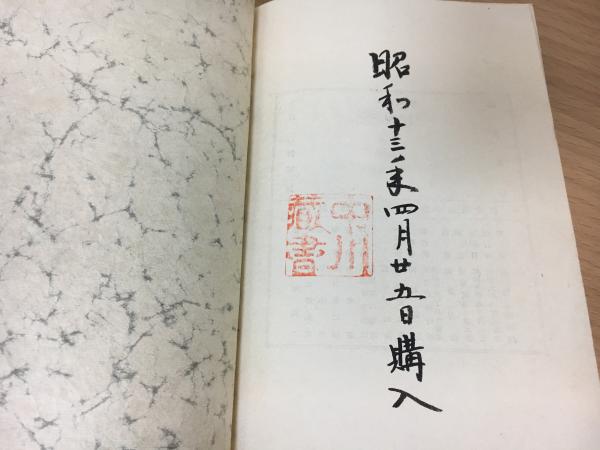 昭和十三年四月廿五日購入
中川
蔵書